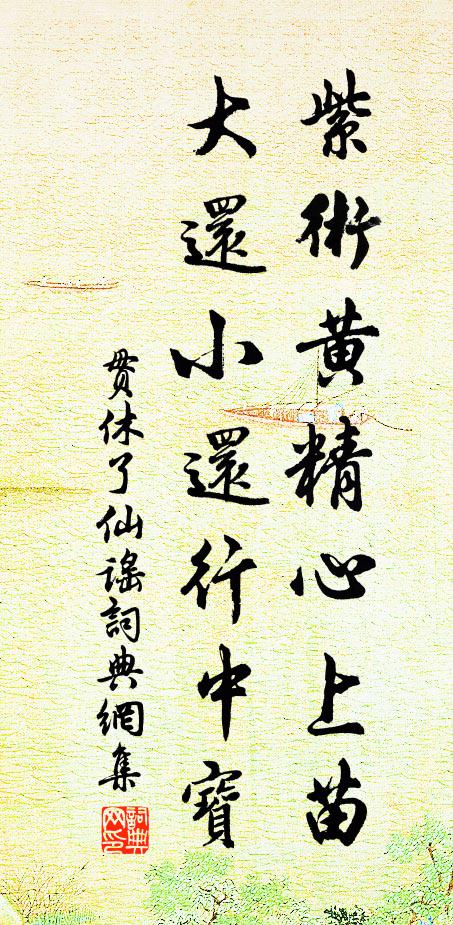 紫術黃精心上苗
大還小還行中寶
貫休了仙謠詞典網集
詞典網印